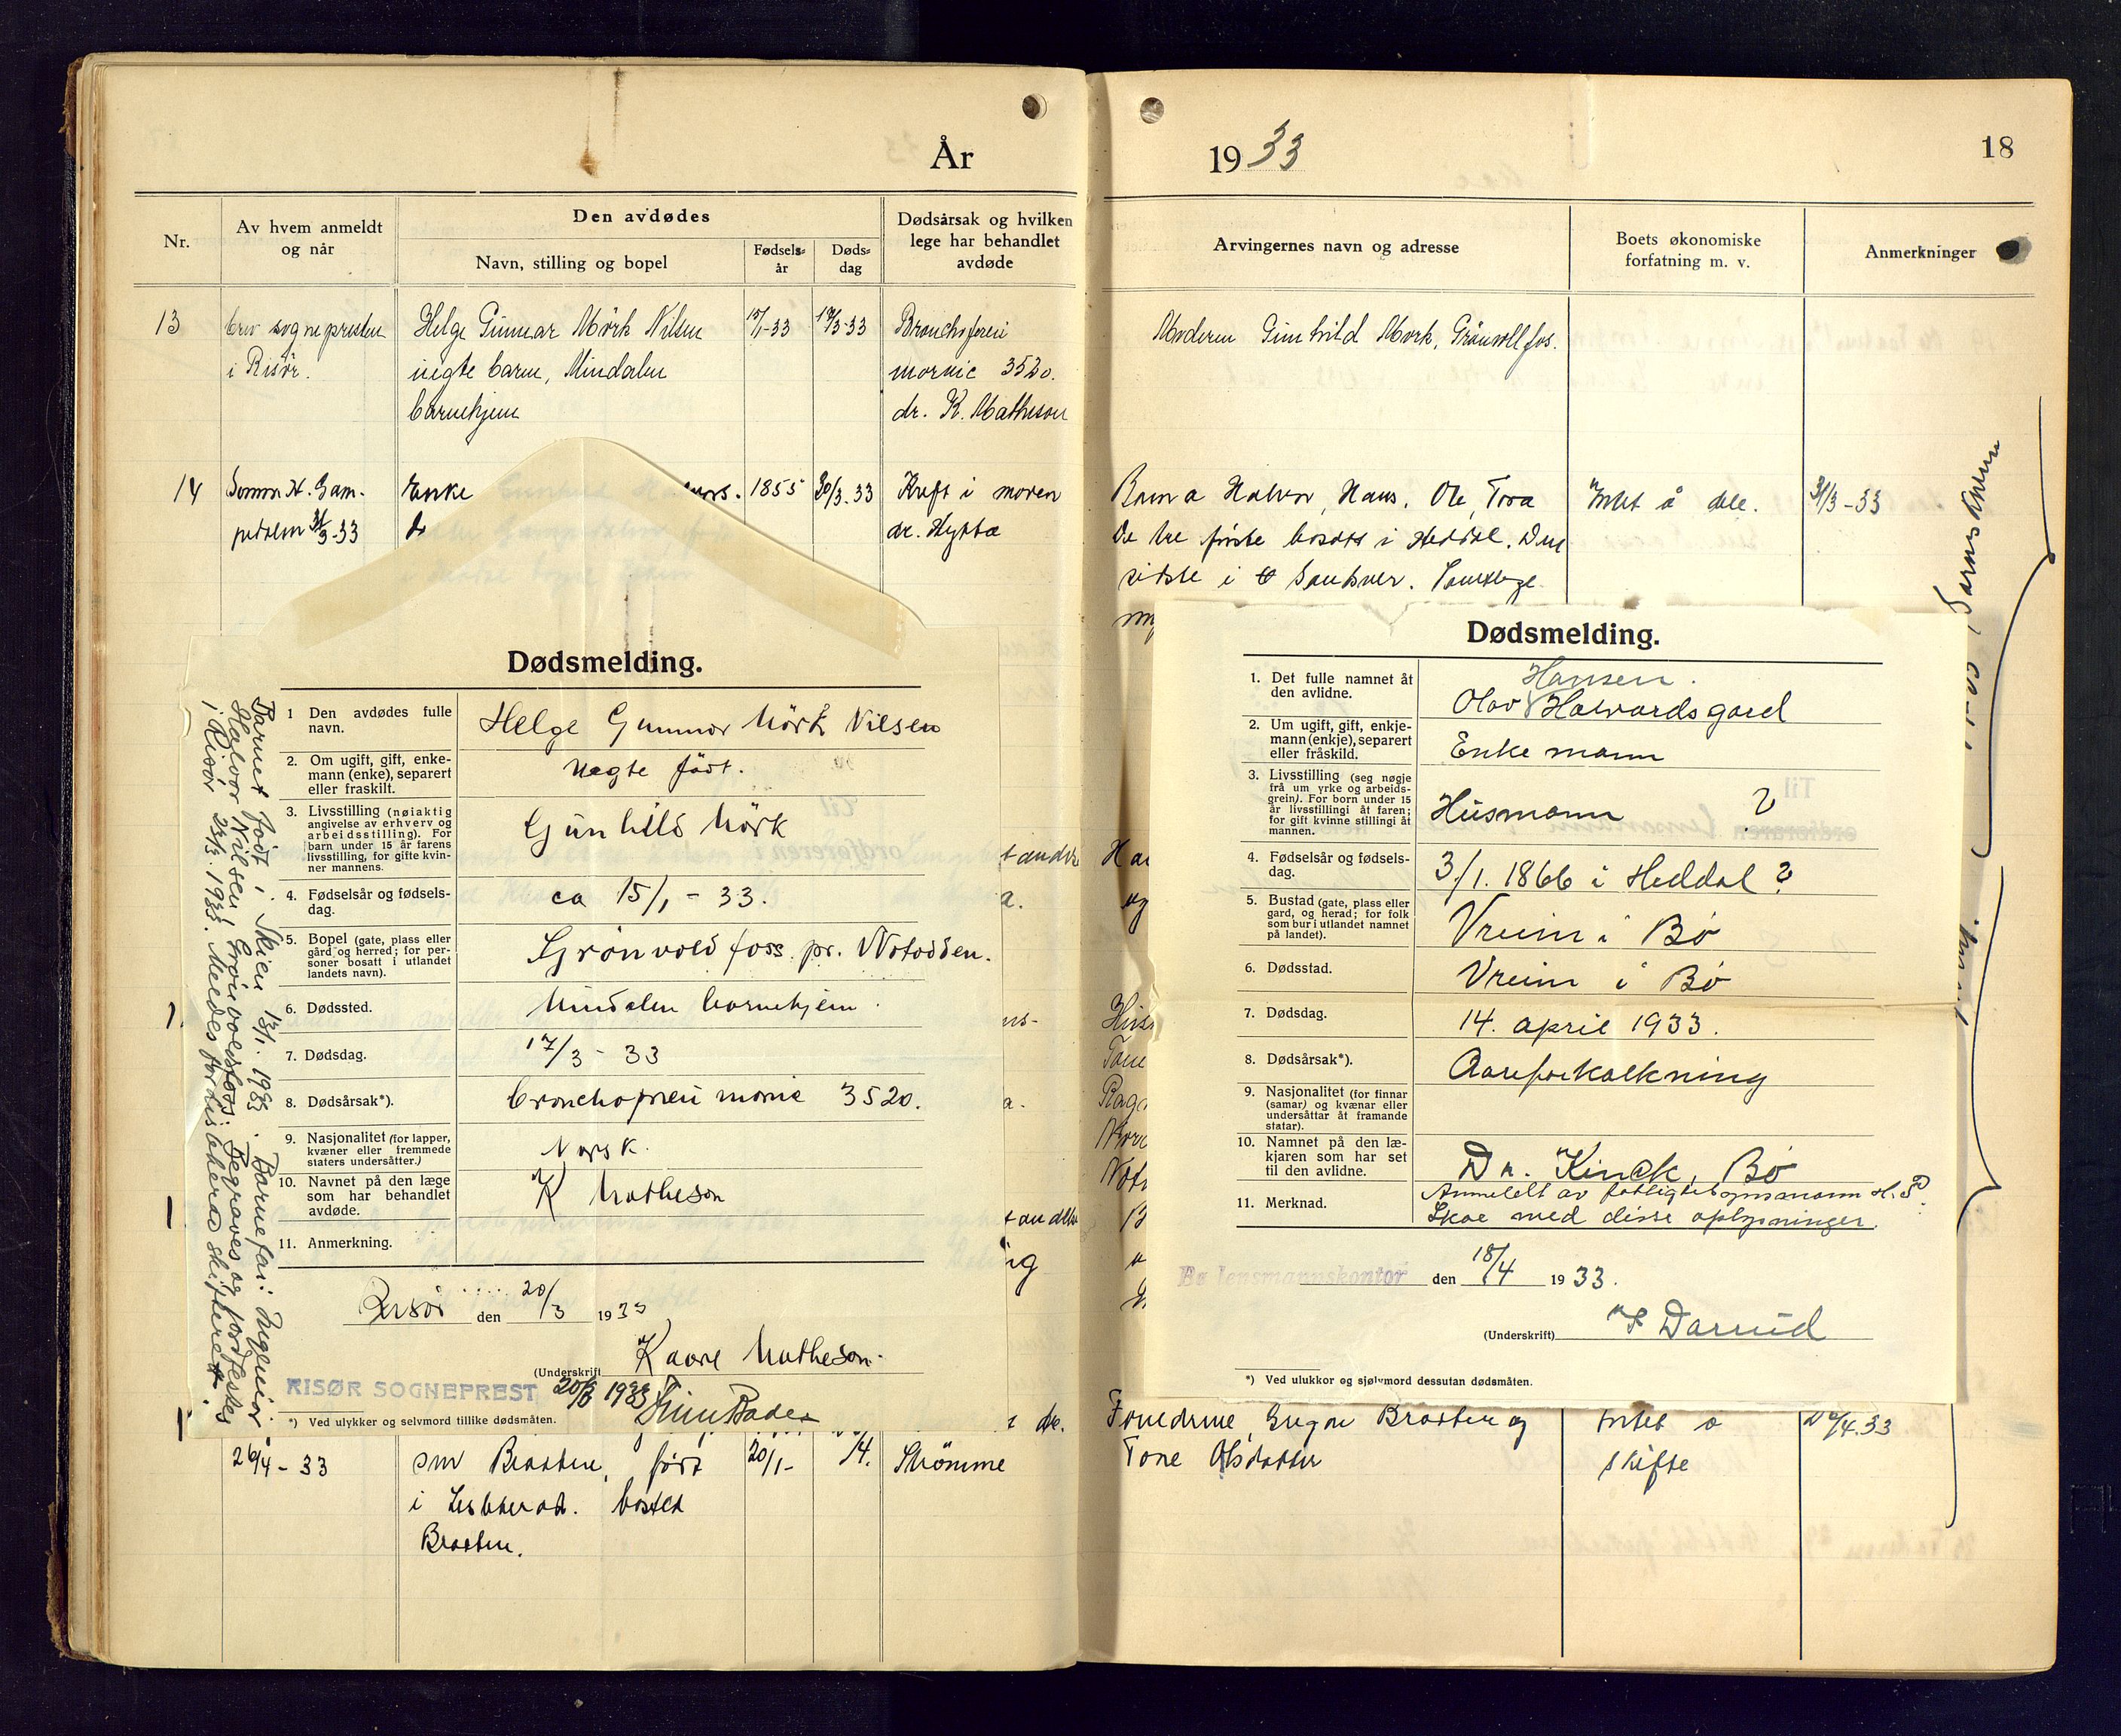 År
1933
18
Nr.
Av hvem anmeldt
og når
Den avdødes
Navn, stilling og bopel
Fødsels-
år
Døds-
dag
Dødsårsak og hvilken
lege har behandlet
avdøde
Arvingernes navn og adresse
Boets økonomiske
forfatning m. v.
Anmerkninger
13
brev sognepresten
i Risør.
Helge Gunnar Mørk Nilsen
uegte barn, Mindalen
barnehjem
-33
17/3-33
3520.
dr. K. Matheson
Moderen Gunhild Mørk, Grønvollfos.
14
31/3-33
Enke
1855
30/3.33
Kreft i maven
dr. Hytta
Barna Halvor, Hans, Ole, Tora
De tre første bosatt i Heddal. Den
sidste i Sandsver.
Intet å dele.
31/3-33
Dødsmelding.
1 Den avdødes fulle
navn.
Helge Gunnar Mörk Nilsen
2. Om ugift, gift, enke-
mann (enke), separert
eller fraskilt.
Uegte födt.
3. Livsstilling (nøiaktig
angivelse av erhverv og
arbeidsstilling). For
barn under 15 år farens
livsstilling, for gifte kvin-
ner mannens.
Gunhild Mörk
4. Fødselsår og fødsels-
dag.
ca 15/1 - 33.
5. Bopel (gate, plass eller
gård og herred; for per-
soner bosatt i utlandet
landets navn).
Grönvold foss. pr. Notodden.
6. Dødssted.
Mindalen barnehjem.
7. Dødsdag.
17/3 - 33
8. Dødsårsak*).
bronchopneumonie 3520.
9. Nasjonalitet (for lapper,
kvæner eller fremmede
staters undersåtter.)
Norsk.
10. Navnet på den læge
som har behandlet
avdøde.
K Matheson
11. Anmerkning.
Risør den 20/3 1933
(Underskrift)
Kaare Matheson.
RISØR SOGNEPREST
20/3 1933
*) Ved ulykker og selvmord tillike dødsmåten.
Barnet født i Skien 13/1. 1933. Barnefar: Ingeniør
Halvor Nilsen, Grönvoldsfoss. Begraves og jordfestes
i Risør 23/3. 1933. Meldes for lisleherad skifterett.
Dødsmelding.
1. Det fulle namnet åt
den avlidne.
Hansen.
Olav Halvardsgard
2. Um ugift, gift, enkje-
mann (enkje), separert
eller fråskild.
Enkemann
3. Livsstilling (seg nøgje
frå um yrke og arbeids-
grein). For born under 15
år livsstillingi åt faren;
for gift kvinne stillingi åt
mannen.
Husmann ?
4. Fødselsår og fødsels-
dag.
3/1. 1866 i Heddal ?
5. Bustad (gate, plass eller
gard, og herad; for folk
som bur i utlandet namnet
på landet).
Vreim i Bø
6. Dødsstad.
Vreim i Bø
7. Dødsdag.
14. april 1933.
8. Dødsårsak*).
Aareforkalkning
9. Nasjonalitet (for finnar
(samar) og kvænar eller
undersåttar åt framande
statar).
10. Namnet på den læ-
kjaren som har set
til den avlidne.
Dr. Kinck, Bø
11. Merknad.
Anmeldt av fattigtilsynsmann H. P.
Skoe med disse oplysninger.
Bø lensmannskontor den 18/4 1933.
(Underskrift)
Darrud
*) Ved ulukker og sjølvmord dessutan dødsmåten.
26/4 - 33
Braaten, født
i Lisleherad. bosatt
Braaten.
20/1-
/4.
Strømme
Foreldrene, Gregar Braaten og
Tone Olsdatter
Intet å
skifte
/4.33